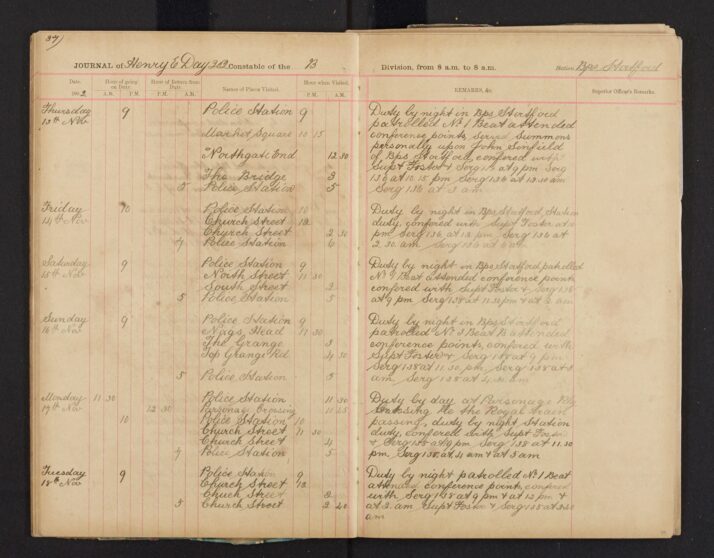 37)
JOURNAL of Henry E Day 262 Constable of the B Division, from 8 a.m. to 8 a.m. Station Bps Stortford
Date. Hour of going on Duty Hour of Return from Duty Names of Places Visited. Hour when Visited. REMARKS, &c. Superior Officer's Remarks.
190 A.M. P.M. A.M. P.M. P.M. A.M.
Thursday 9 Police Station 9
13th Nov
Market Square 10 15
Northgate End 12 30
The Bridge 3
5 Police Station 5
Duty by night in Bps Stortford
patrolled No 1 Beat attended
conference points, Served Summons
personally upon John
of Bps Stortford, confered with
Supt Foster & Serg 138 at 9 pm Serg
136 at 10.15 pm Serg 136 at 12.30 am
Serg 136 at 3 am
Friday 10 Police Station 10
14th Nov Church Street 12
Church Street 2 30
Police Station 6
Duty by night in Bps Stortford, Station
duty, confered with Supt Foster at
pm Serg 136 at 12 pm Serg 136 at
2.30 am Serg 136 at 6 am
Saturday 9 Police Station 9
15th Nov North Street 11 30
South Street 2
5 Police Station 5
Duty by night in Bps Stortford patrolled
Beat attended conference points
confered with Supt Foster & Serg 138
at 9 pm Serg 138 at 11.30 pm & at 2 am
Sunday 9 Police Station 9
16th Nov Nags Head 11 30
The Grange 3
Top Grange Rd 4 30
5 Police Station 5
Duty by night in Bps Stortford
patrolled No 3 Beat attended
conference points, confered with
Supt Foster & Serg 138 at 9 pm
Serg 138 at 11.30 pm Serg 138 at 3
am Serg 138 at 4.30 am
Monday 11 30 Police Station 11 30
17th Nov 12 30 Parsonage Crossing 11 45
10 Police Station 10
Church Street 11 30
Church Street 4
Police Station 5
Duty by day at Parsonage Rly
Crossing re the Royal train
passing, duty by night Station
duty, confered with Supt Foster
& Serg 138 at 9 pm Serg 138 at 11.30
pm, Serg 138 at 4 am & at 5 am
Tuesday 9 Police Station 9
18th Nov Church Street 12
Church Street 2
5 Church Street 2 40
Duty by night patrolled No 1 Beat
attended conference points, confered
with Serg 138 at 9 pm & at 12 pm &
at 2 am Supt Foster & Serg 138 at 2.40
am